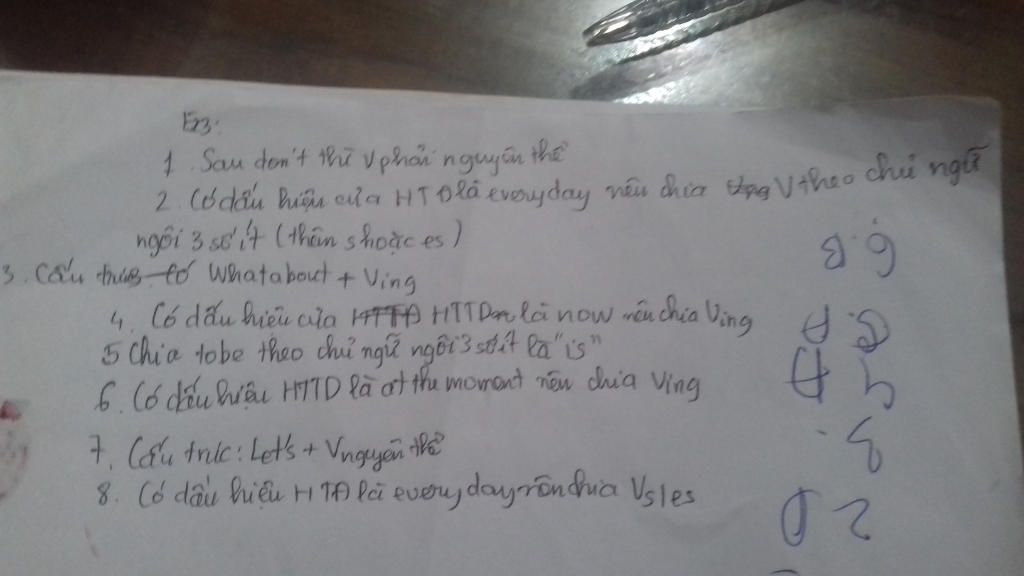 Ex3:
1. Sau don't thì V phải nguyên thể
2. Có dấu hiệu của HTĐ là everyday nên chia V theo chủ ngữ
ngôi 3 số ít (thên s hoặc es)
3. Cấu trúc What about + Ving
4. Có dấu hiệu của HTTD là now nên chia Ving
5 Chia tobe theo chủ ngữ ngôi 3 số ít là "is"
6. Có dấu hiệu HTTD là at the moment nên chia Ving
7. Cấu trúc: Let's + V nguyên thể
8. Có dấu hiệu HTĐ là everyday nên chia Vs/es
6. B
5. A
4 A
3
2 D